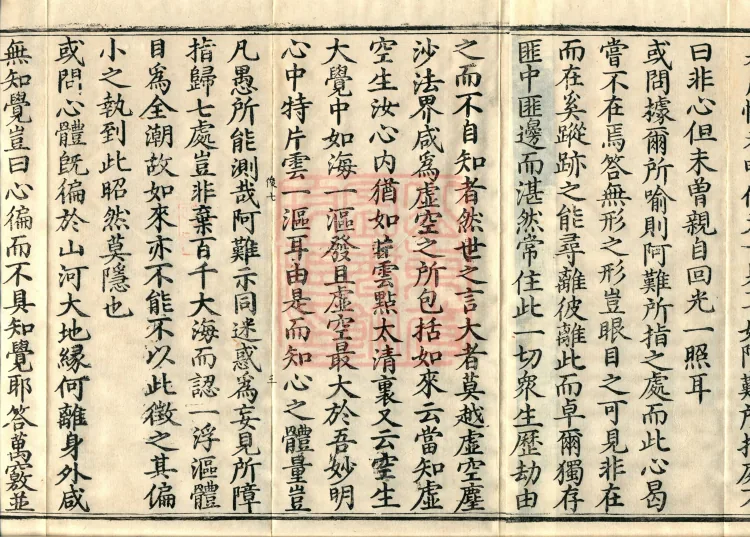 曰非心但未曾親自回光一照耳
或問據爾所喻則阿難所指之處而此心曷
嘗不在焉答無形之形豈眼目之可見非在
而在奚蹤跡之能尋離彼離此而卓爾獨存
匪中匪邊而湛然常住此一切衆生歷劫由
之而不自知者然世之言大者莫越虛空塵
沙法界咸爲虛空之所包括如來云當知虛
空生汝心內猶如片雲點太清裏又云空生
大覺中如海一漚發且虛空最大於吾妙明
心中特片雲一漚耳由是而知心之體量豈
像七
三
凡愚所能測哉阿難示同迷惑爲妄見所障
指歸七處豈非棄百千大海而認一浮漚體
目爲全潮故如來亦不能不以此徵之其偏
小之執到此昭然莫隱也
或問心體旣徧於山河大地緣何離身外咸
無知覺豈曰心徧而不具知覺耶答萬竅並